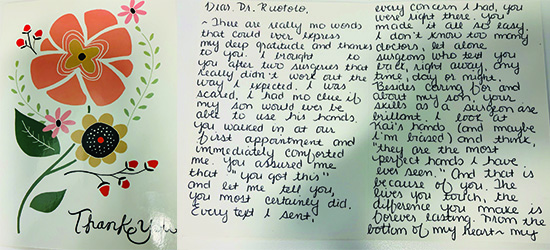 Thank You
Dear Dr. Ruotolo,
~ There are really no words
that could ever express
my deep gratitude and thanks
to you. I brought to
you after two surgeries that
really didn't work out the
way I expected. I was
scared. I had no clue if
my son would ever be
able to use his hands.
You walked in at our
first appointment and
immediately comforted
me. You assured me
that "you got this"
and let me tell you,
you most certainly did.
Every text I sent,
every concern I had, you
were right there. You
made it all so easy.
I don't know too many
doctors, let alone
surgeons who text you
back, right away, any
time, day or night.
Besides caring for and
about my son, your
skills as a surgeon are
brilliant. I look at
Kai's hands (and maybe
i'm biased) and think,
"they are the most
perfect hands i have
ever seen." And that is
because of you. The
lives you touch, the
difference you make is
forever lasting. From the
bottom of my heart ~ my